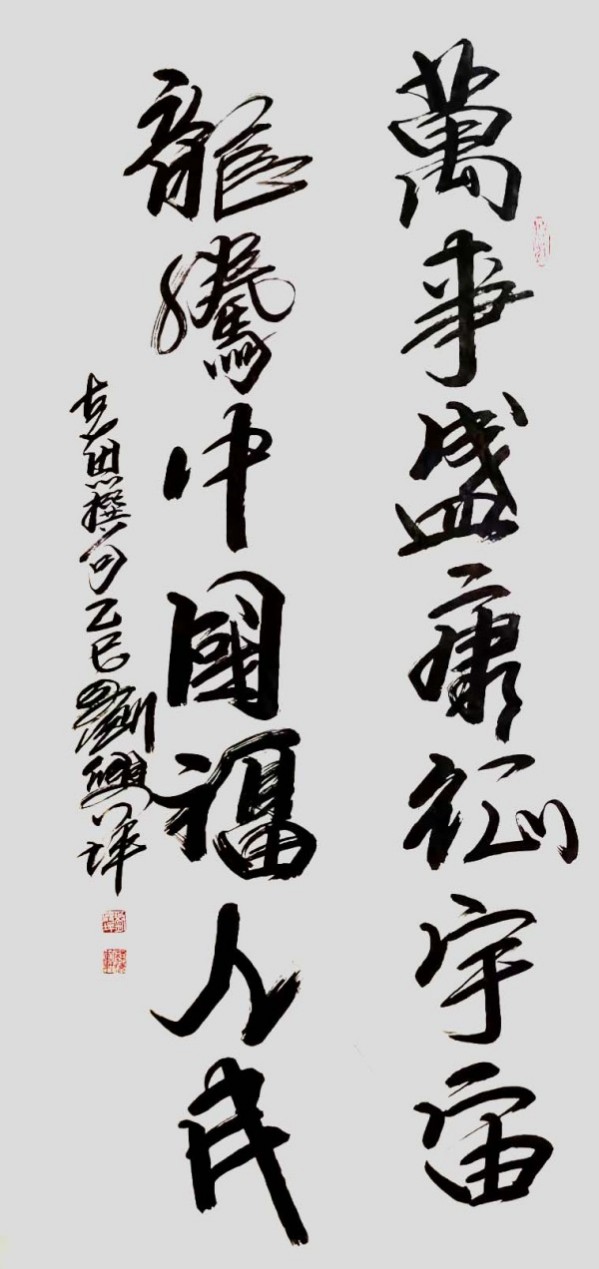 萬事盛康宇宙
龍騰中國福人民
撰句乙巳劉興祥